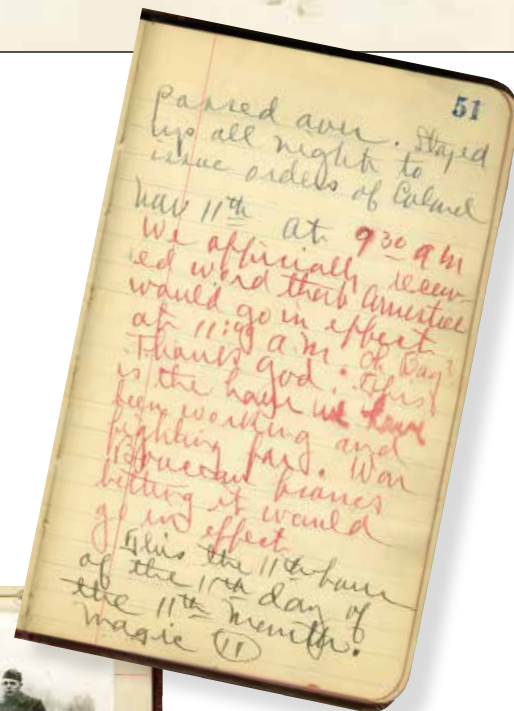 51
passed over. Stayed
up all night to
issue orders of Colonel
Nov 11th at 9 30 a m
We officially receiv-
ed word that armistice
would go in effect
at 11: a.m. Oh Boy
Thanks God. This
is the hour we have
been working and
fighting for. Won
15 francs
betting it would
go in effect
This the 11th hour
of the 11th day of
the 11th month.
Magic (11)